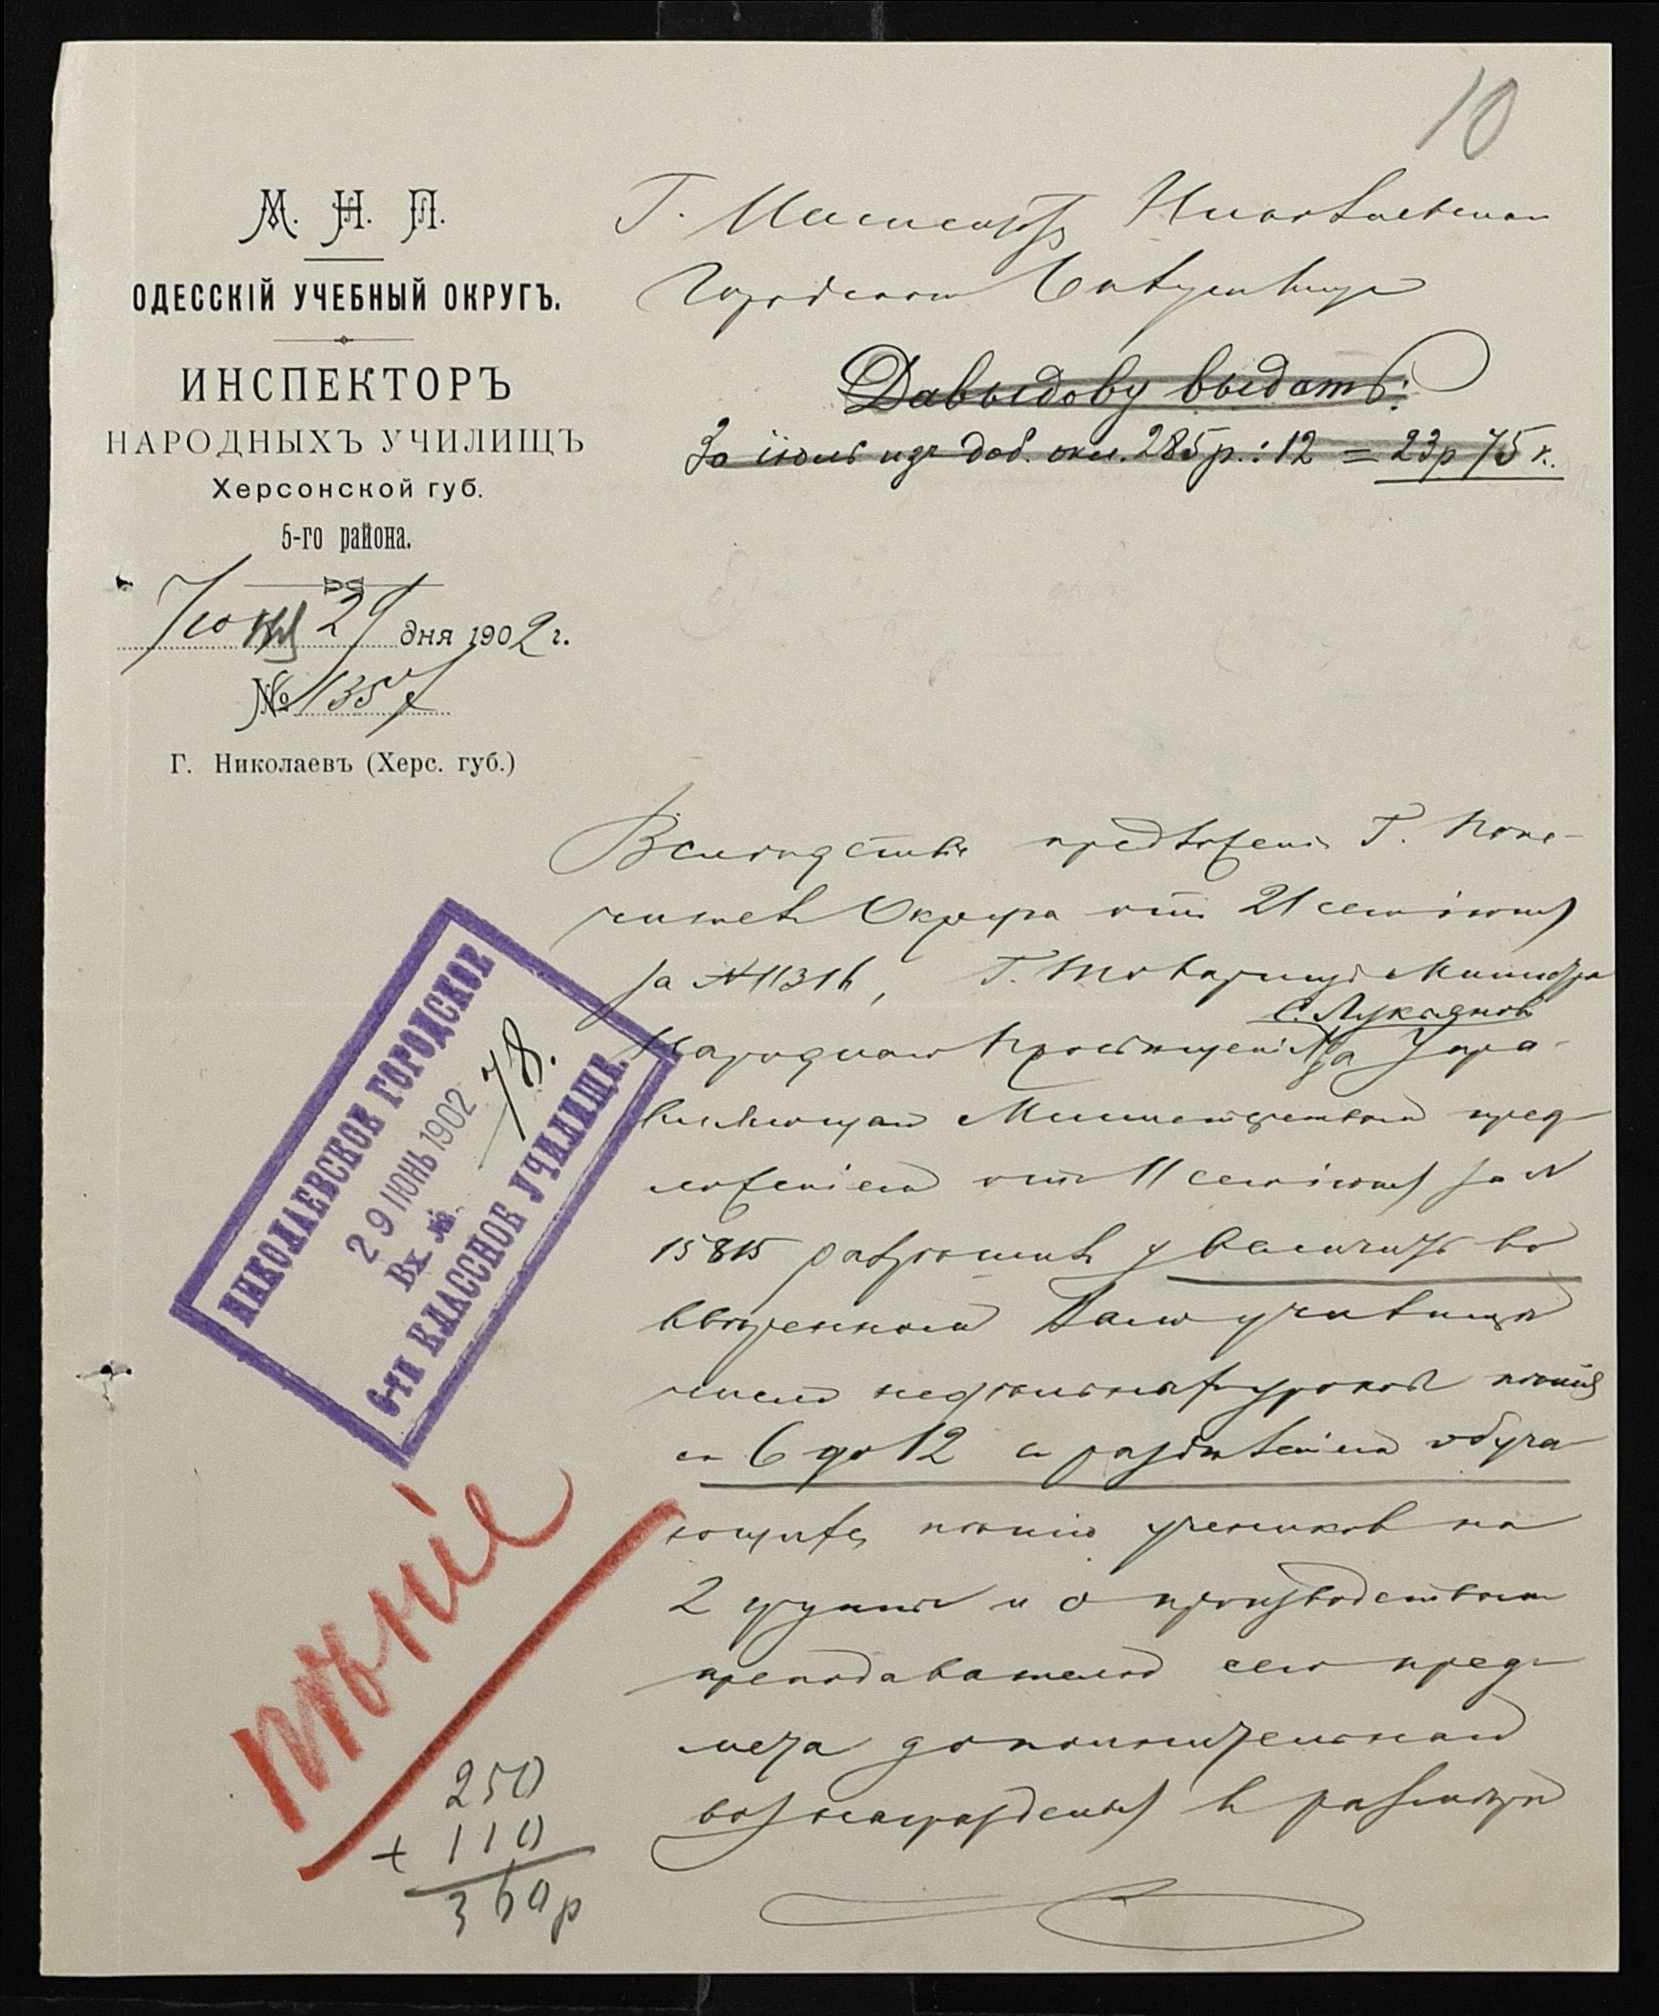 10
М. Н. П.
ОДЕССКІЙ УЧЕБНЫЙ ОКРУГЪ.
ИНСПЕКТОРЪ
НАРОДНЫХЪ УЧИЛИЩЪ
Херсонской губ.
5-го района.
Іюня 29 дня 1902 г.
№ 1357
Г. Николаевъ (Херс. губ.)
Г. Инспектору Николаевскаго
Городского Училища
Давыдову выдать:
За іюль изъ доб. окл. 285 р. : 12 = 23 р 75 к.
Вслѣдствіе предложенія Г. Попе-
чителя Округа отъ 21 сего іюня
за № 11316, Г. Товарищъ Министра
С. Лукьяновъ
Народнаго Просвѣщенія за Упра-
вляющаго Министерствомъ пред-
ложеніемъ отъ 11 сего іюня за №
15815 разрѣшилъ увеличить во
ввѣренномъ Вамъ училищѣ
число недѣльныхъ уроковъ пѣнія
съ 6 до 12 съ раздѣленіемъ обуча-
ющихся пѣнію учениковъ на
2 группы и о производствомъ
преподавателю сего пред-
мета дополнительнаго
вознагражденія въ размѣрѣ
НИКОЛАЕВСКОЕ ГОРОДСКОЕ
29 ІЮНЬ 1902
Вх. №. 78.
6-ТИ КЛАССНОЕ УЧИЛИЩЕ.
пѣніе
250
+ 110
360 р